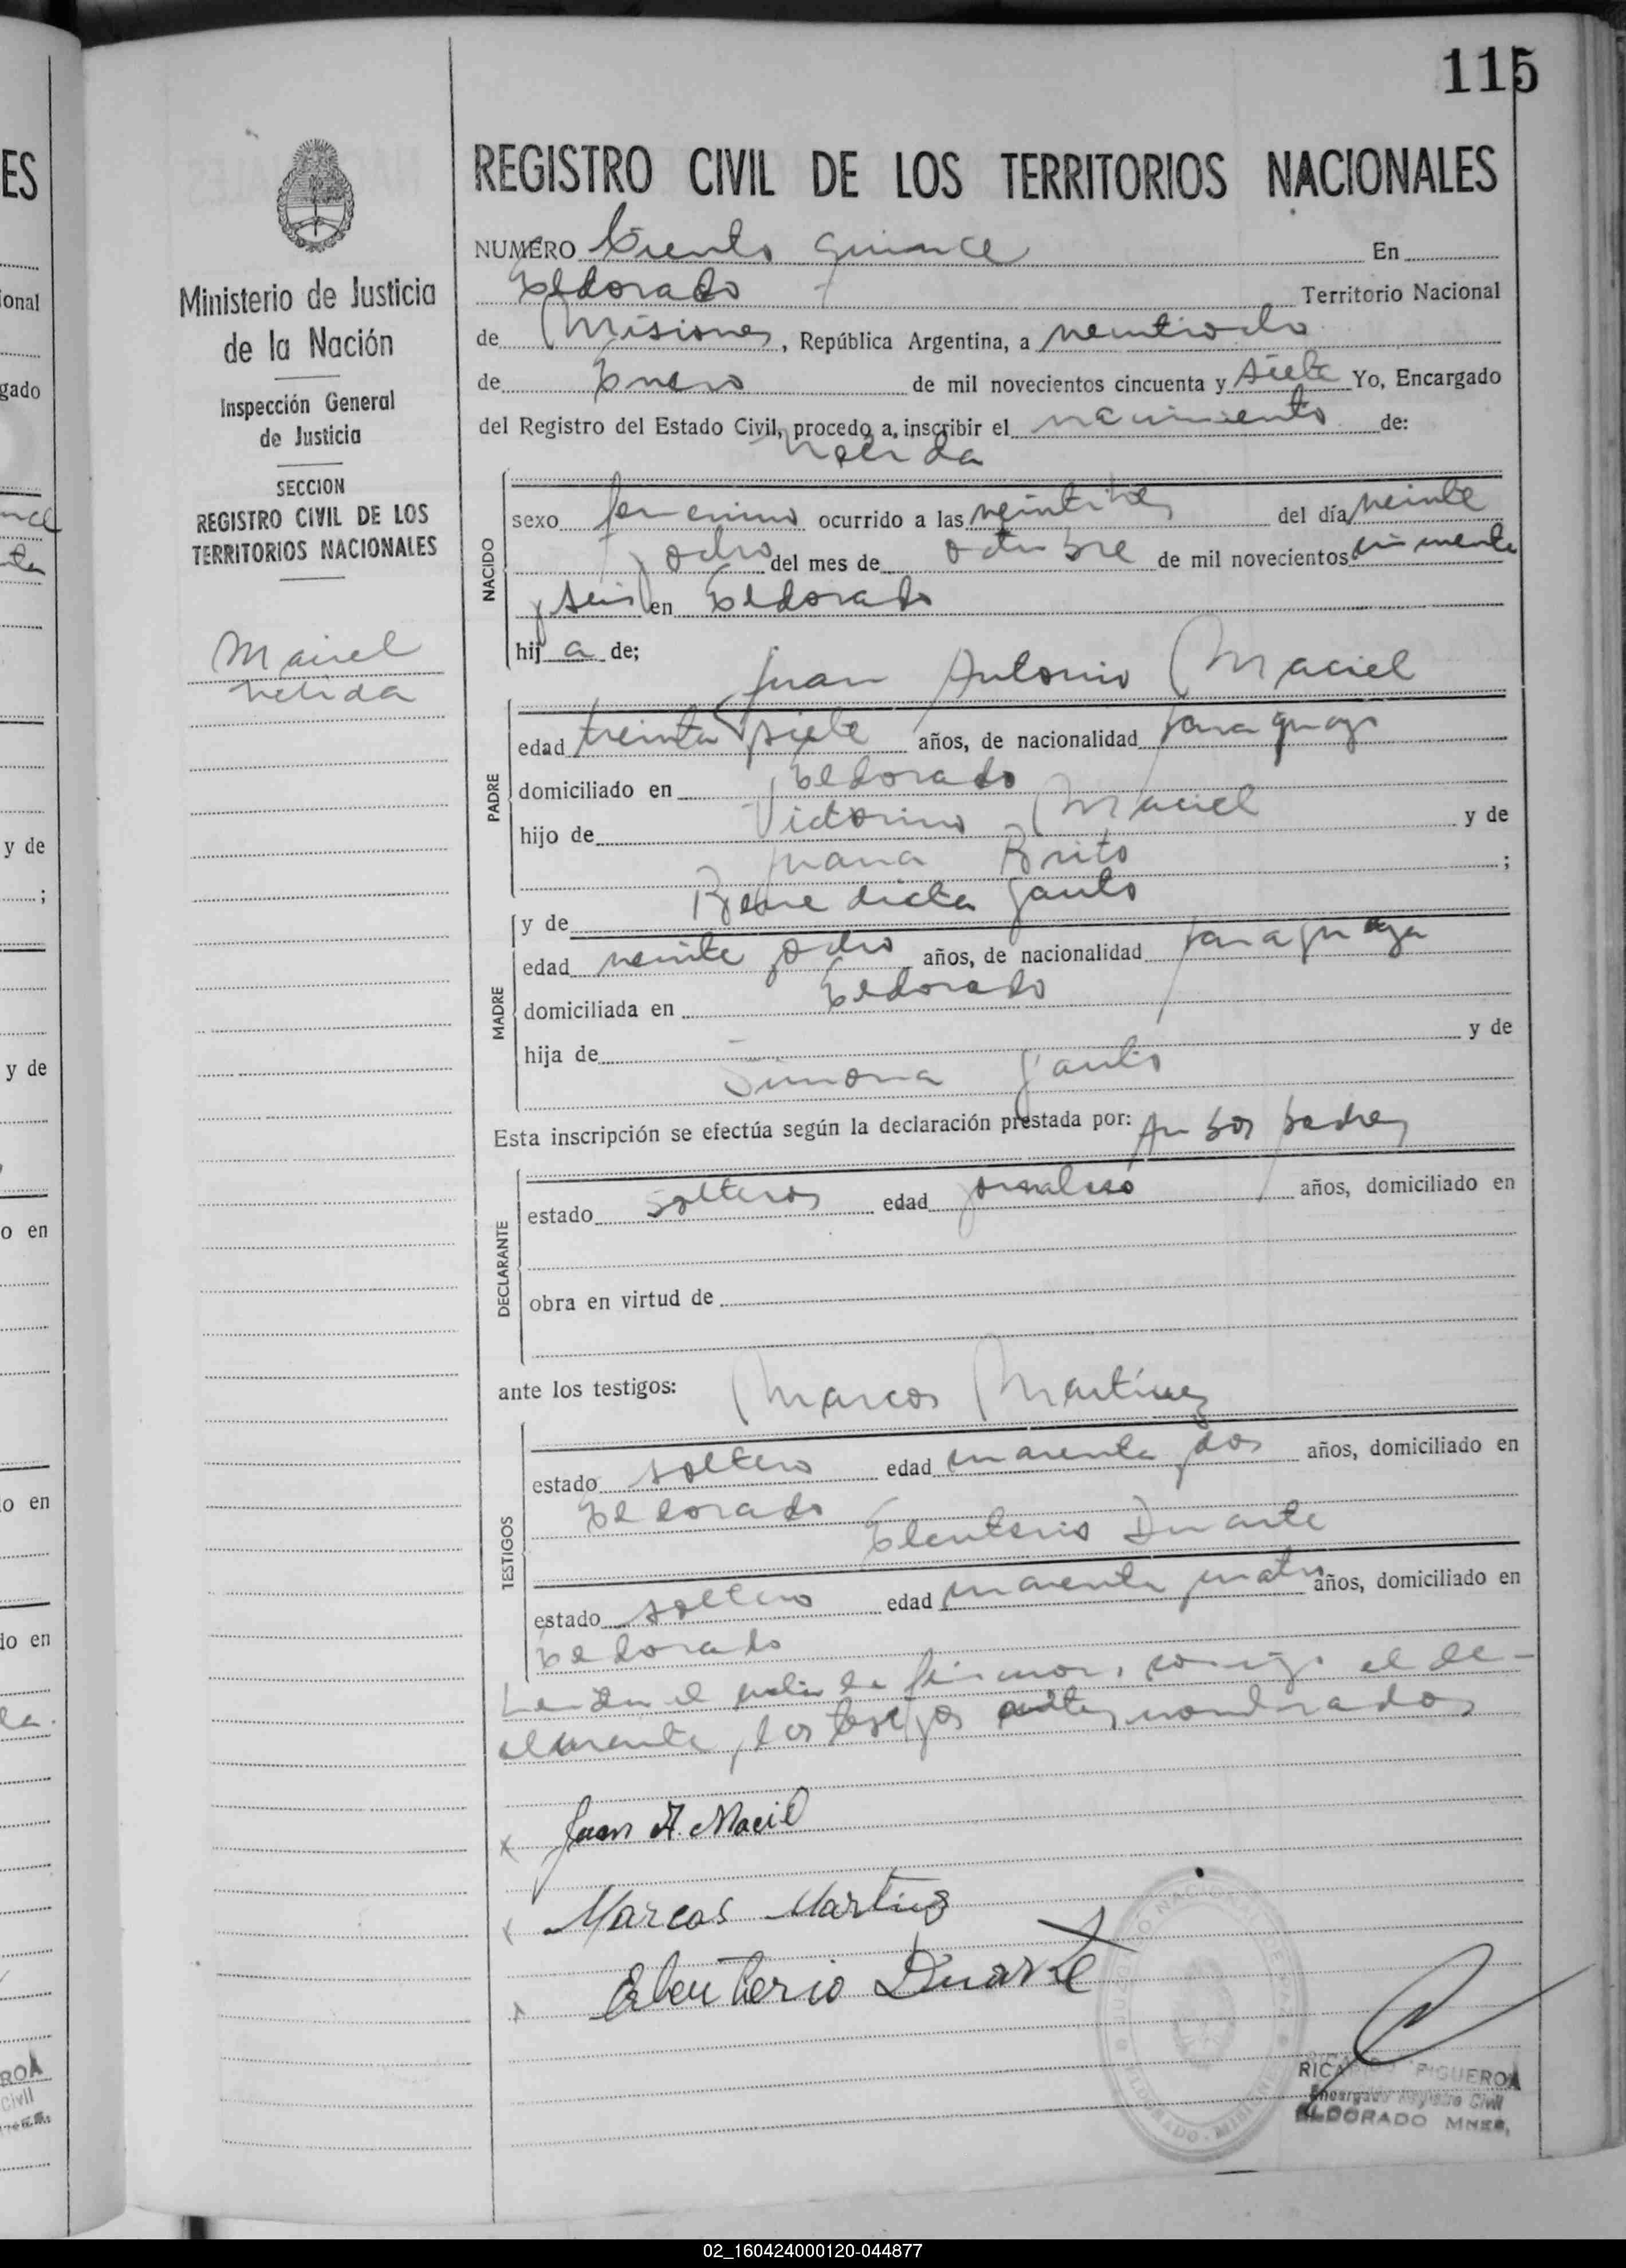 115
REGISTRO CIVIL DE LOS TERRITORIOS NACIONALES
Ministerio de Justicia
de la Nación
Inspección General
de Justicia
SECCION
REGISTRO CIVIL DE LOS
TERRITORIOS NACIONALES
Maciel
Nelida
NUMERO Ciento quince En
Eldorado Territorio Nacional
de Misiones, República Argentina, a veintiocho
de Enero de mil novecientos cincuenta y siete Yo, Encargado
del Registro del Estado Civil, procedo a inscribir el nacimiento de:
Nelida
NACIDO
sexo femenino ocurrido a las veintitres del día veinte
y ocho del mes de octubre de mil novecientos cincuenta
y seis en Eldorado
hij a de;
Juan Antonio Maciel
PADRE
edad treinta y siete años, de nacionalidad paraguayo
domiciliado en Eldorado
hijo de Victorino Maciel y de
Juana Brito ;
y de Benedicta Gauto
MADRE
edad veinte y ocho años, de nacionalidad paraguaya
domiciliada en Eldorado
hija de y de
Simona Gauto
Esta inscripción se efectúa según la declaración prestada por: Ambos padres
DECLARANTE
estado solteros edad jornalero años, domiciliado en
obra en virtud de
ante los testigos: Marcos Martinez
TESTIGOS
estado soltero edad cuarenta y dos años, domiciliado en
Eldorado
Eleuterio Duarte
estado soltero edad cuarenta y cuatro años, domiciliado en
Eldorado
Leida el acta la firmaron, conmigo el de-
clarante y los testigos antes nombrados
x Juan A. Maciel
x Marcos Martinez
x Eleuterio Duarte
ELDORADO - MISIONES
FIGUEROA
Encargado Registro Civil
ELDORADO MNES.
y de
y de
02_160424000120-044877